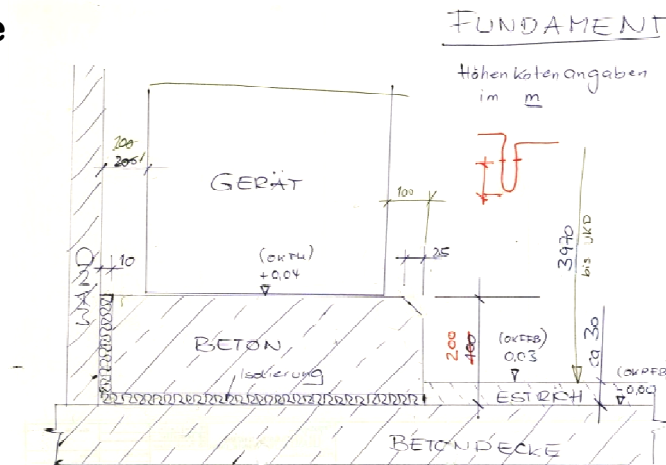 e
FUNDAMENT
Höhenkotenangaben
im m
200
GERÄT
100
WAND
10
25
(OKFU)
+0,04
3970
bis UKD
BETON
Isolierung
200
400
(OKFFB)
0,03
ca 30
ESTRICH
(OKPFB)
-0,00
BETONDECKE